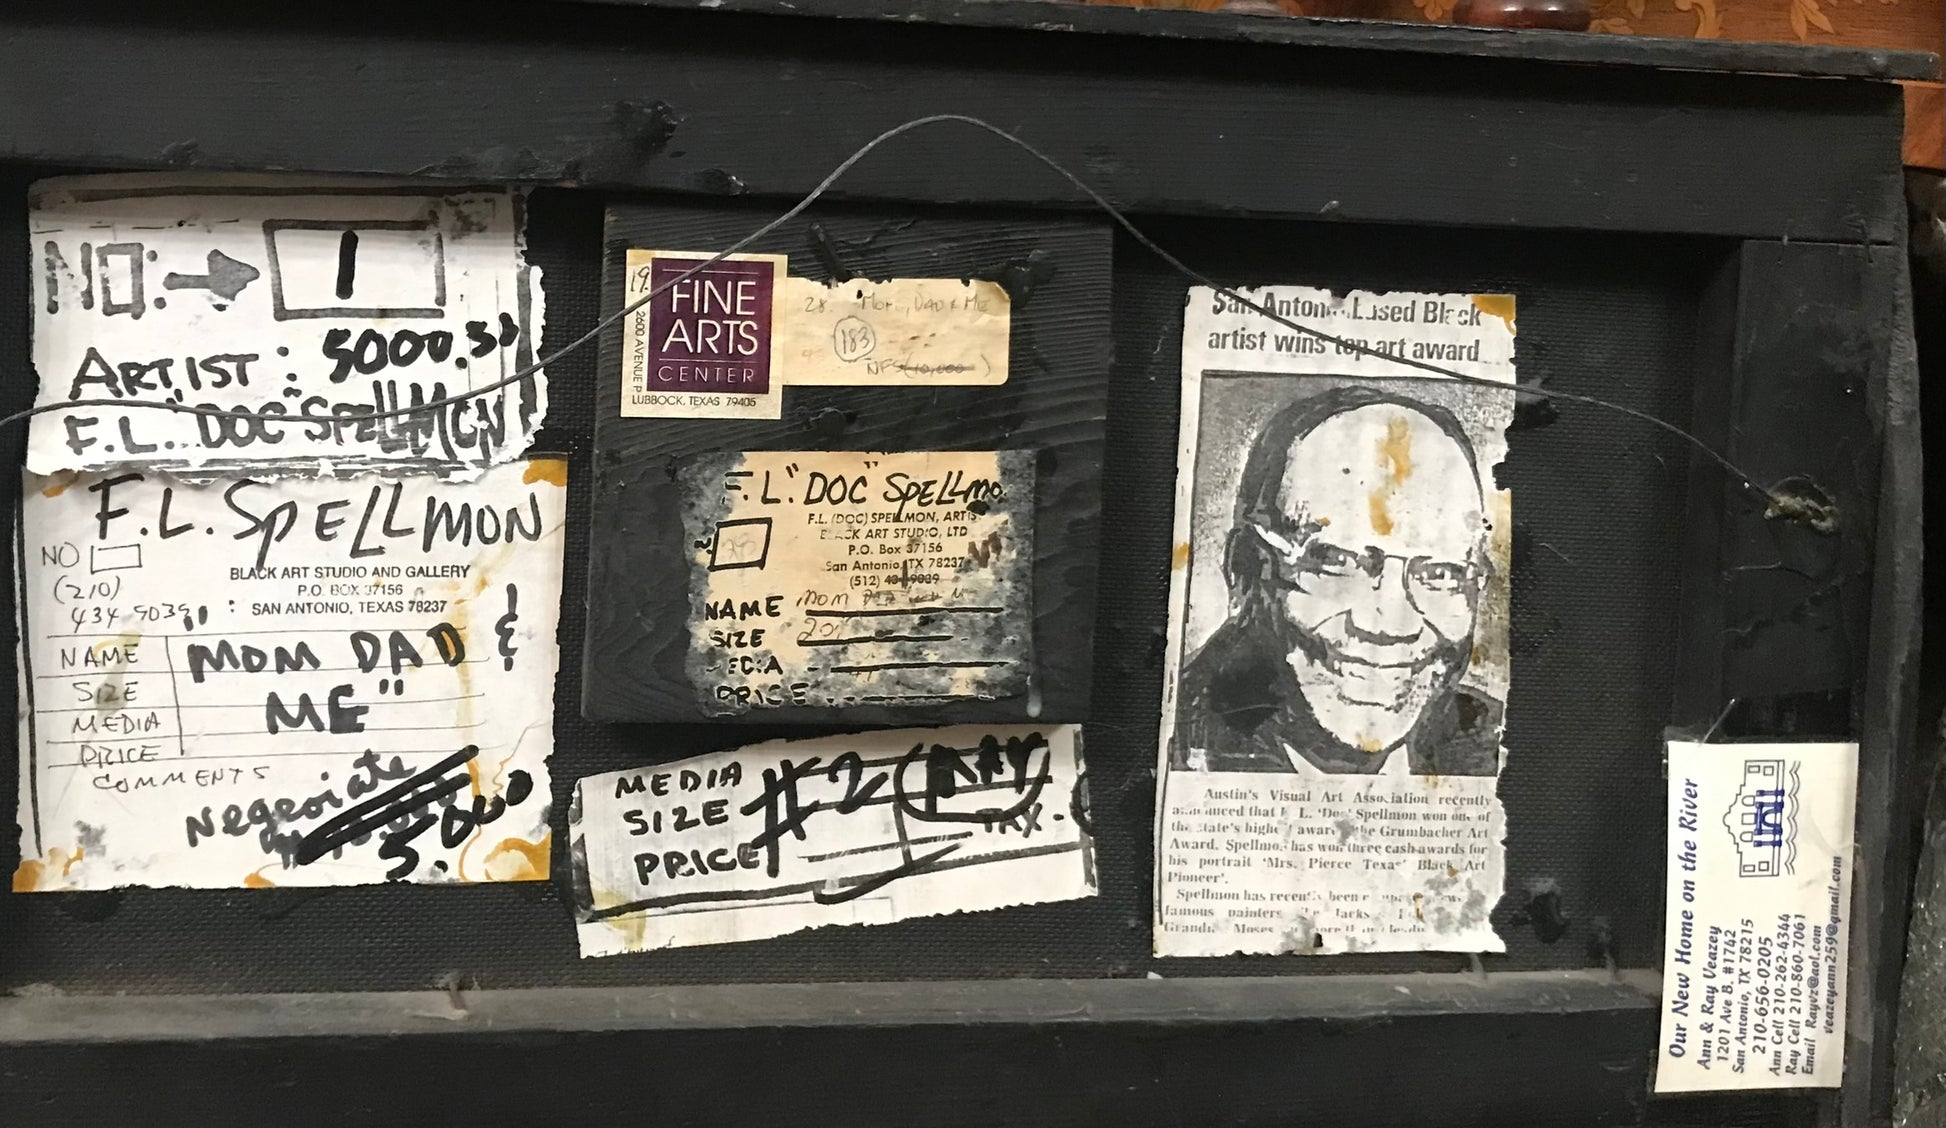 NO: → 1
5000.
ARTIST:
F.L. "DOC" SPELLMON
F.L. SPELLMON
NO
(210)
434-9039
BLACK ART STUDIO AND GALLERY
P.O. BOX 37156
SAN ANTONIO, TEXAS 78237
NAME
"MOM DAD &
ME"
SIZE
MEDIA
PRICE
COMMENTS
Negeoiate
5.000
19.
FINE
ARTS
CENTER
2600 AVENUE P
LUBBOCK, TEXAS 79405
28. Mom, DAD & ME
183
NFS (10,000)
F.L. "DOC" SPELLMO
F.L. (DOC) SPELLMON, ARTIS
BLACK ART STUDIO, LTD
P.O. Box 37156
San Antonio, TX 78237
(512) 434-9039
28
NAME MOM
SIZE 20
MEDIA
PRICE
MEDIA
SIZE
PRICE
#2
RAY
TAX -
San Antonio Based Black
artist wins top art award
Austin's Visual Art Association recently
announced that F. L. 'Doc' Spellmon won one of
the state's highest awards the Grumbacher Art
Award. Spellmon has won three cash awards for
his portrait 'Mrs. Pierce Texas' Black Art
Pioneer'.
Spellmon has recently been
famous painters
Grandma Moses
Our New Home on the River
Ann & Ray Veazey
1201 Ave B. #1742
San Antonio, TX 78215
210-656-0205
Ann Cell 210-262-4344
Ray Cell 210-860-7061
Email Rayvz@aol.com
veazeyann259@gmail.com